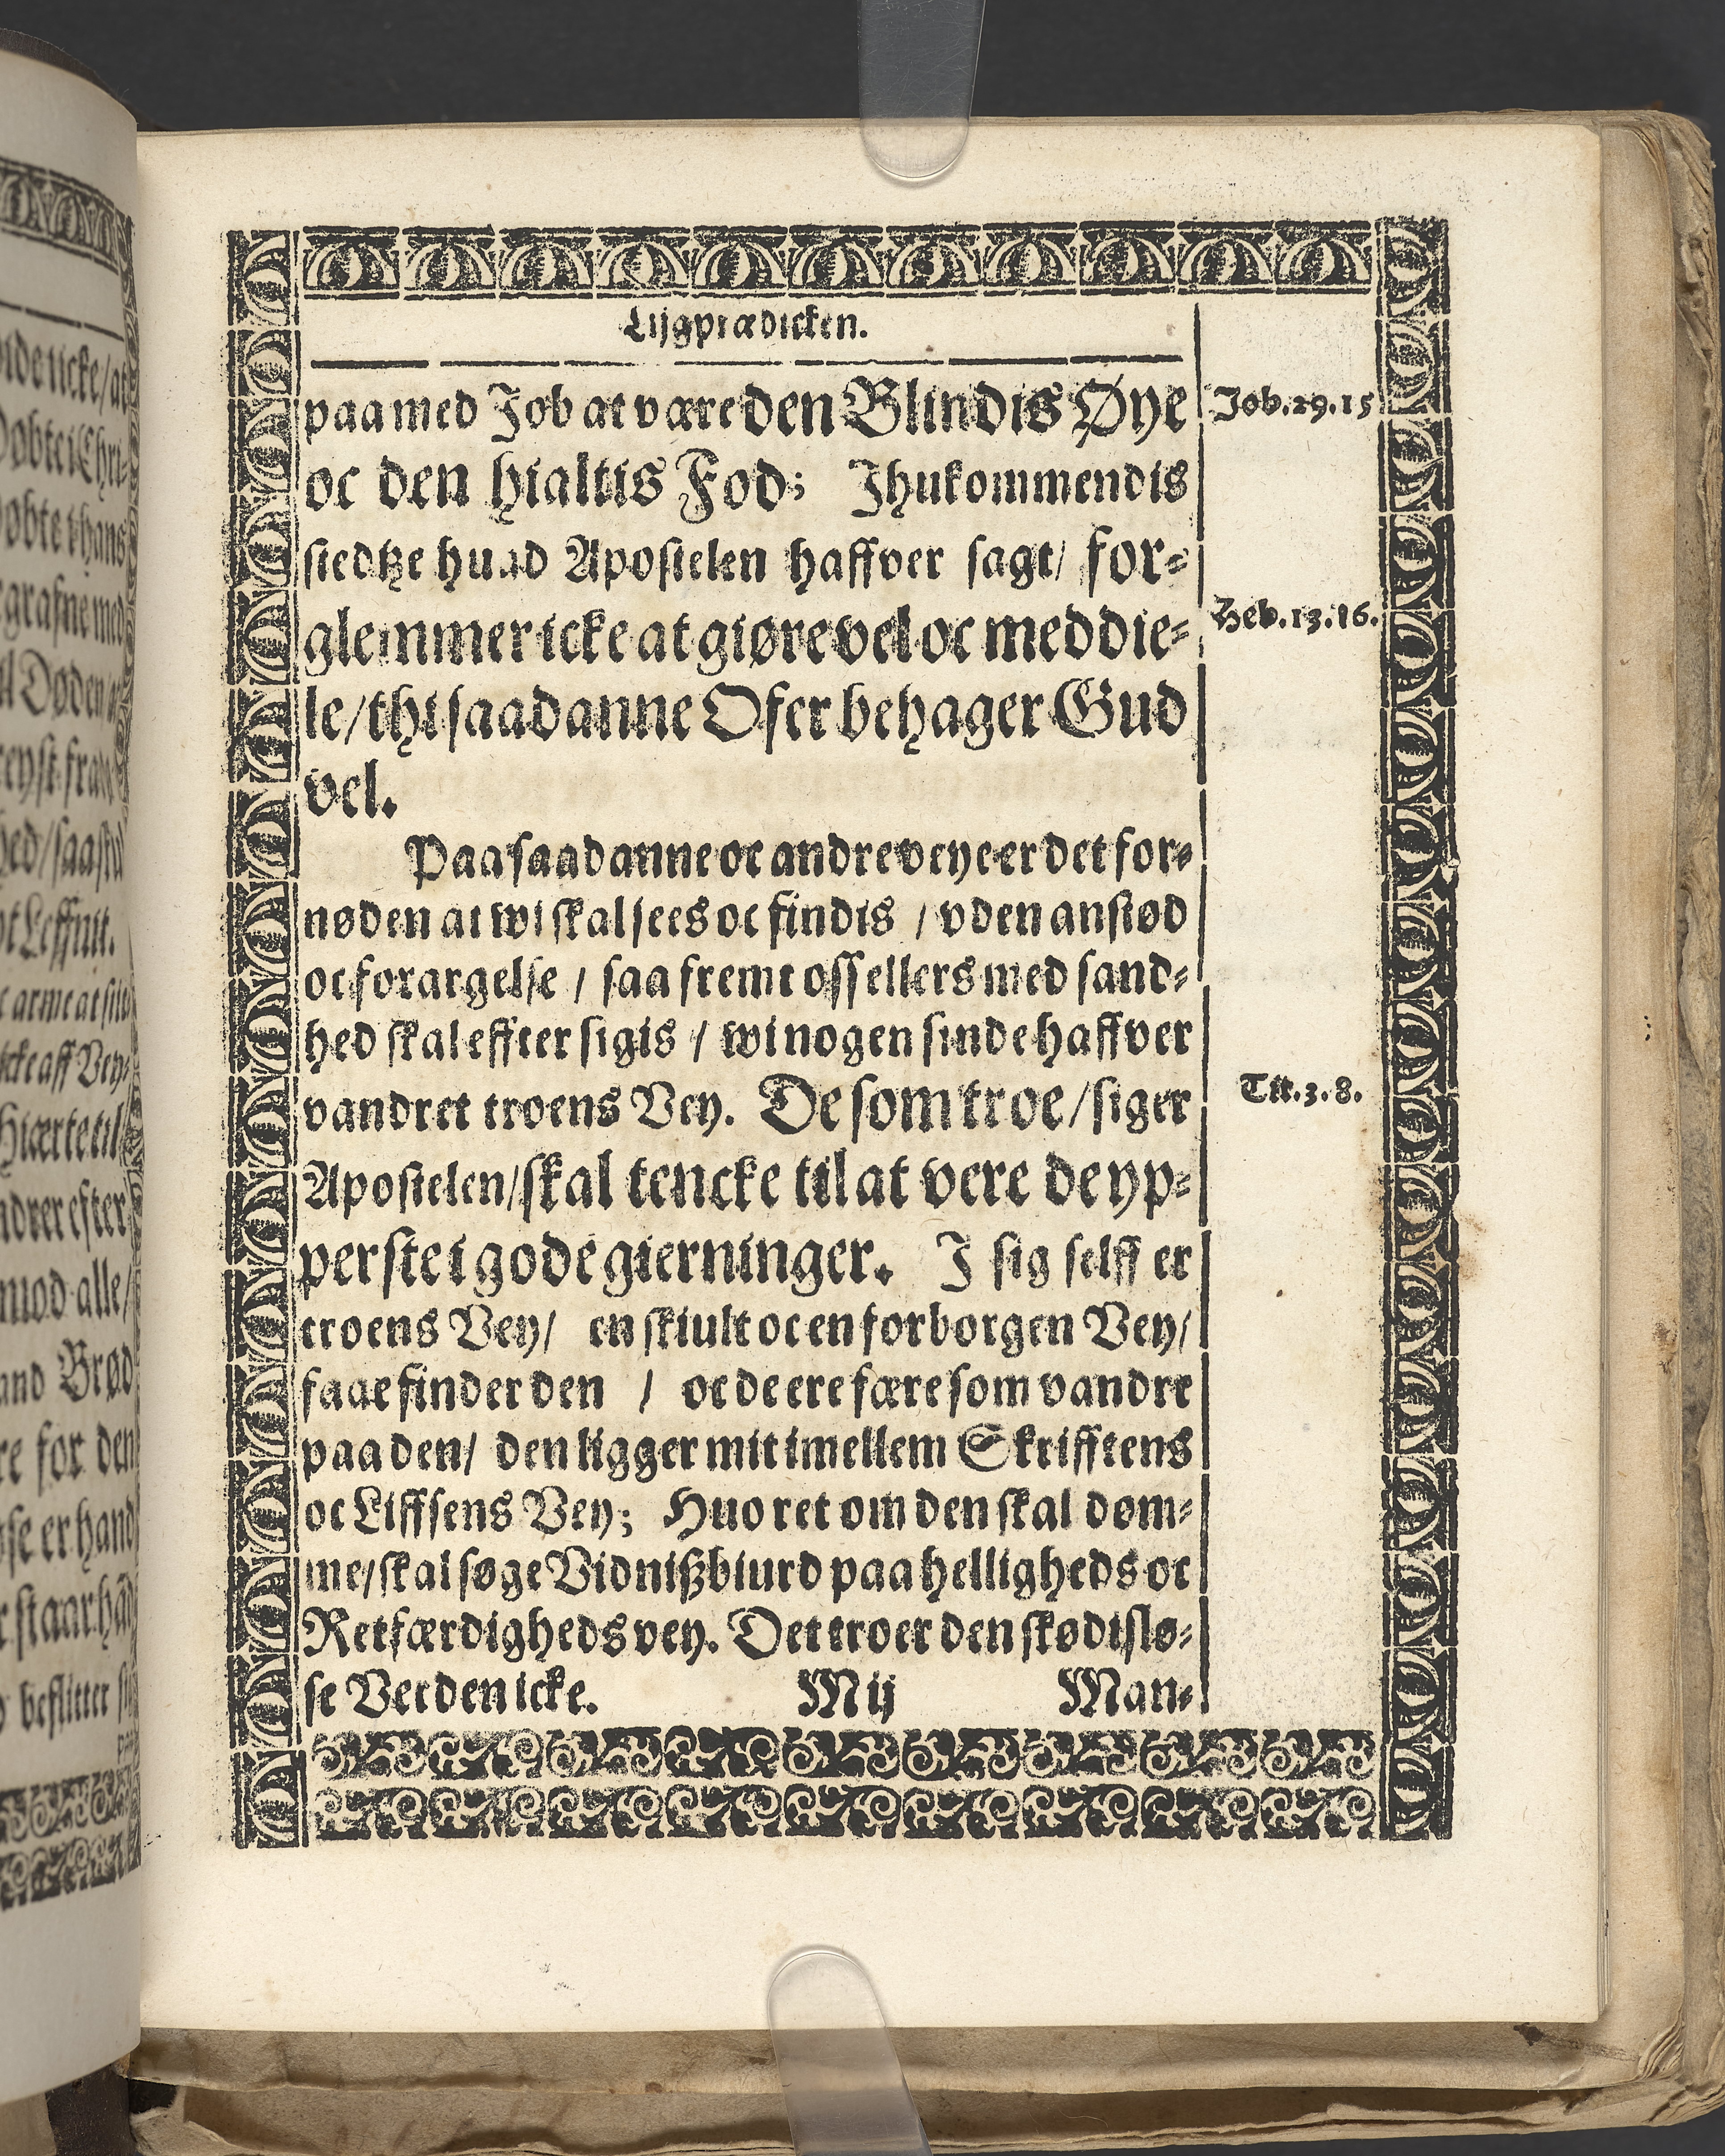 Lijgprædicken.
paa med Job at være den Blindis Øye
Job. 29. 15
oc den hialtis Fod; Ihukommendis
stedtze huad Apostelen haffver sagt/ for⸗
glemmer icke at giøre vel oc meddie⸗
Heb. 13. 16.
le/ thi saadanne Ofer behager Gud
vel.
Paa saadanne oc andre veye er det for⸗
nøden at wi skal sees oc findis / vden anstød
oc forargelse / saa fremt oss ellers med sand⸗
hed skal effter sigis / wi nogen sinde haffver
vandret troens Vey. De som troe/ siger
Tit. 3. 8.
Apostelen/ skal tencke til at vere de yp⸗
perste i gode gierninger. I sig selff er
troens Vey/ en skiult oc en forborgen Vey/
faae finder den / oc de ere fære som vandre
paa den/ den ligger mit imellem Skrifftens
oc Liffsens Vey; Huo ret om den skal døm⸗
me/ skal søge Vidnißbiurd paa hellighedsoc
Retfærdigheds vey. Det troer den skødislø⸗
se Verden icke.
Mij
Man⸗